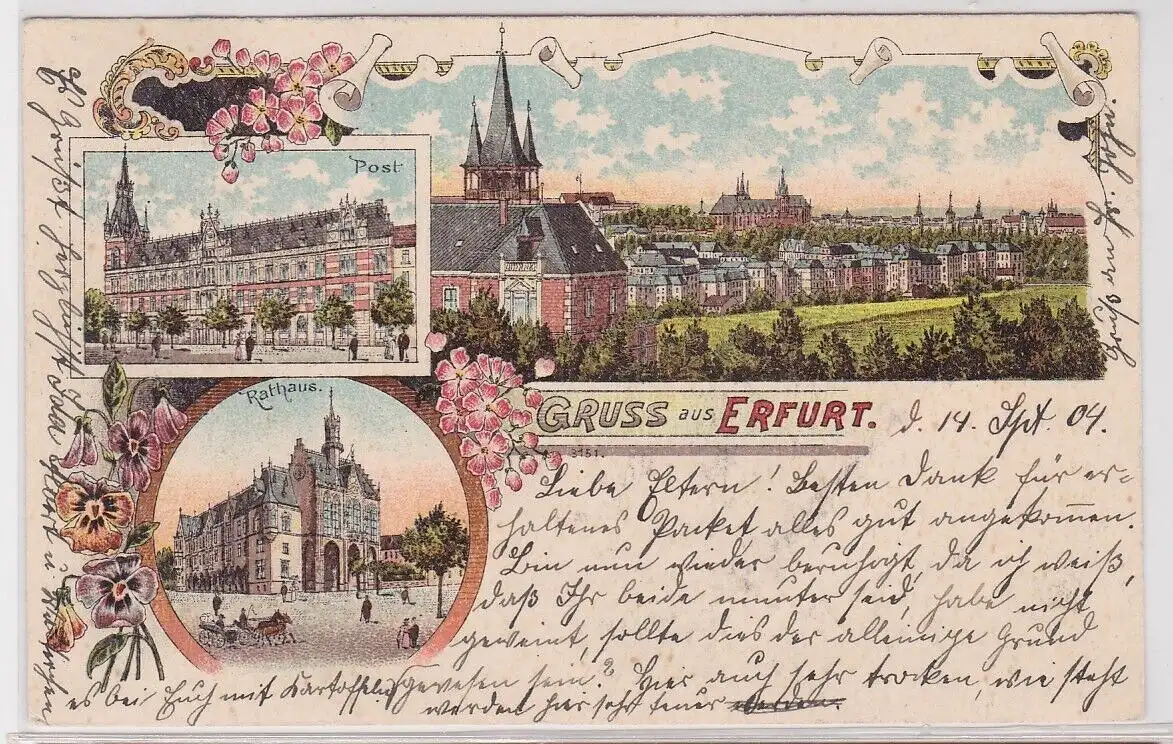 Post
Rathaus.
GRUSS aus ERFURT.
3151.
d. 14. Spt. 04.
Liebe Eltern! Besten Dank für er-
haltenes Packet alles gut angekommen.
Bin nun wieder beruhigt, da ich weiß,
daß Ihr beide munter seid, habe nicht
geweint, sollte dies der alleinige Grund
gewesen sein? Hier auch sehr trocken, wie steht
es bei Euch mit Kartoffeln
werden hier sehr teuer werden.
Es grüßt herzlichst
u.